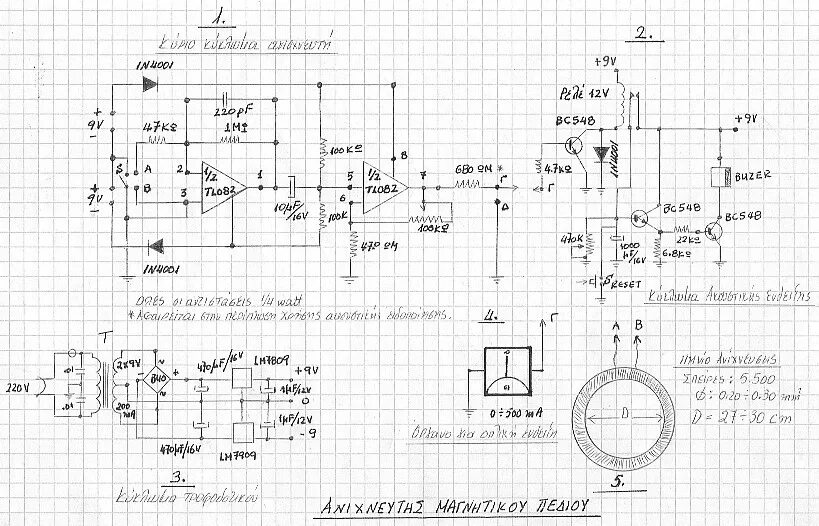 1.
Κύριο κύκλωμα ανιχνευτή
1N4001
+
9V
-
220pF
47KΩ
1MΩ
S
A
B
2
3
1/2
TL082
1
+
9V
-
100KΩ
100K
10μF/
16V
5
6
1/2
TL082
8
7
470 ΩM
100KΩ
680 ΩM *
Γ
Δ
1N4001
ΟΛΕΣ οι αντιστάσεις 1/4 watt
* Αφαιρείται στην περίπτωση χρήσης ακουστικής ειδοποίησης.
2.
+9V
Ρελέ 12V
BC548
1N4001
4.7KΩ
Γ
+9V
BUZER
BC548
BC548
22KΩ
6.8KΩ
470K
1000
μF/16V
RESET
Κύκλωμα Ακουστικής Ενδειξης
T
220V
.01
.01
2x9V
200
mA
B40
~
~
+
-
470μF/16V
LM7809
+9V
1μF/12V
0
1μF/12V
- 9
470μF/16V
LM7909
3.
Κύκλωμα τροφοδοτικού
4.
Γ
0÷500 mA
Οργανο για οπτική ένδειξη
A B
D
5.
Πηνίο Ανίχνευσης
Σπείρες : 5.500
Φ : 0.20÷0.30 mm
D = 27÷30 cm
ΑΝΙΧΝΕΥΤΗΣ ΜΑΓΝΗΤΙΚΟΥ ΠΕΔΙΟΥ